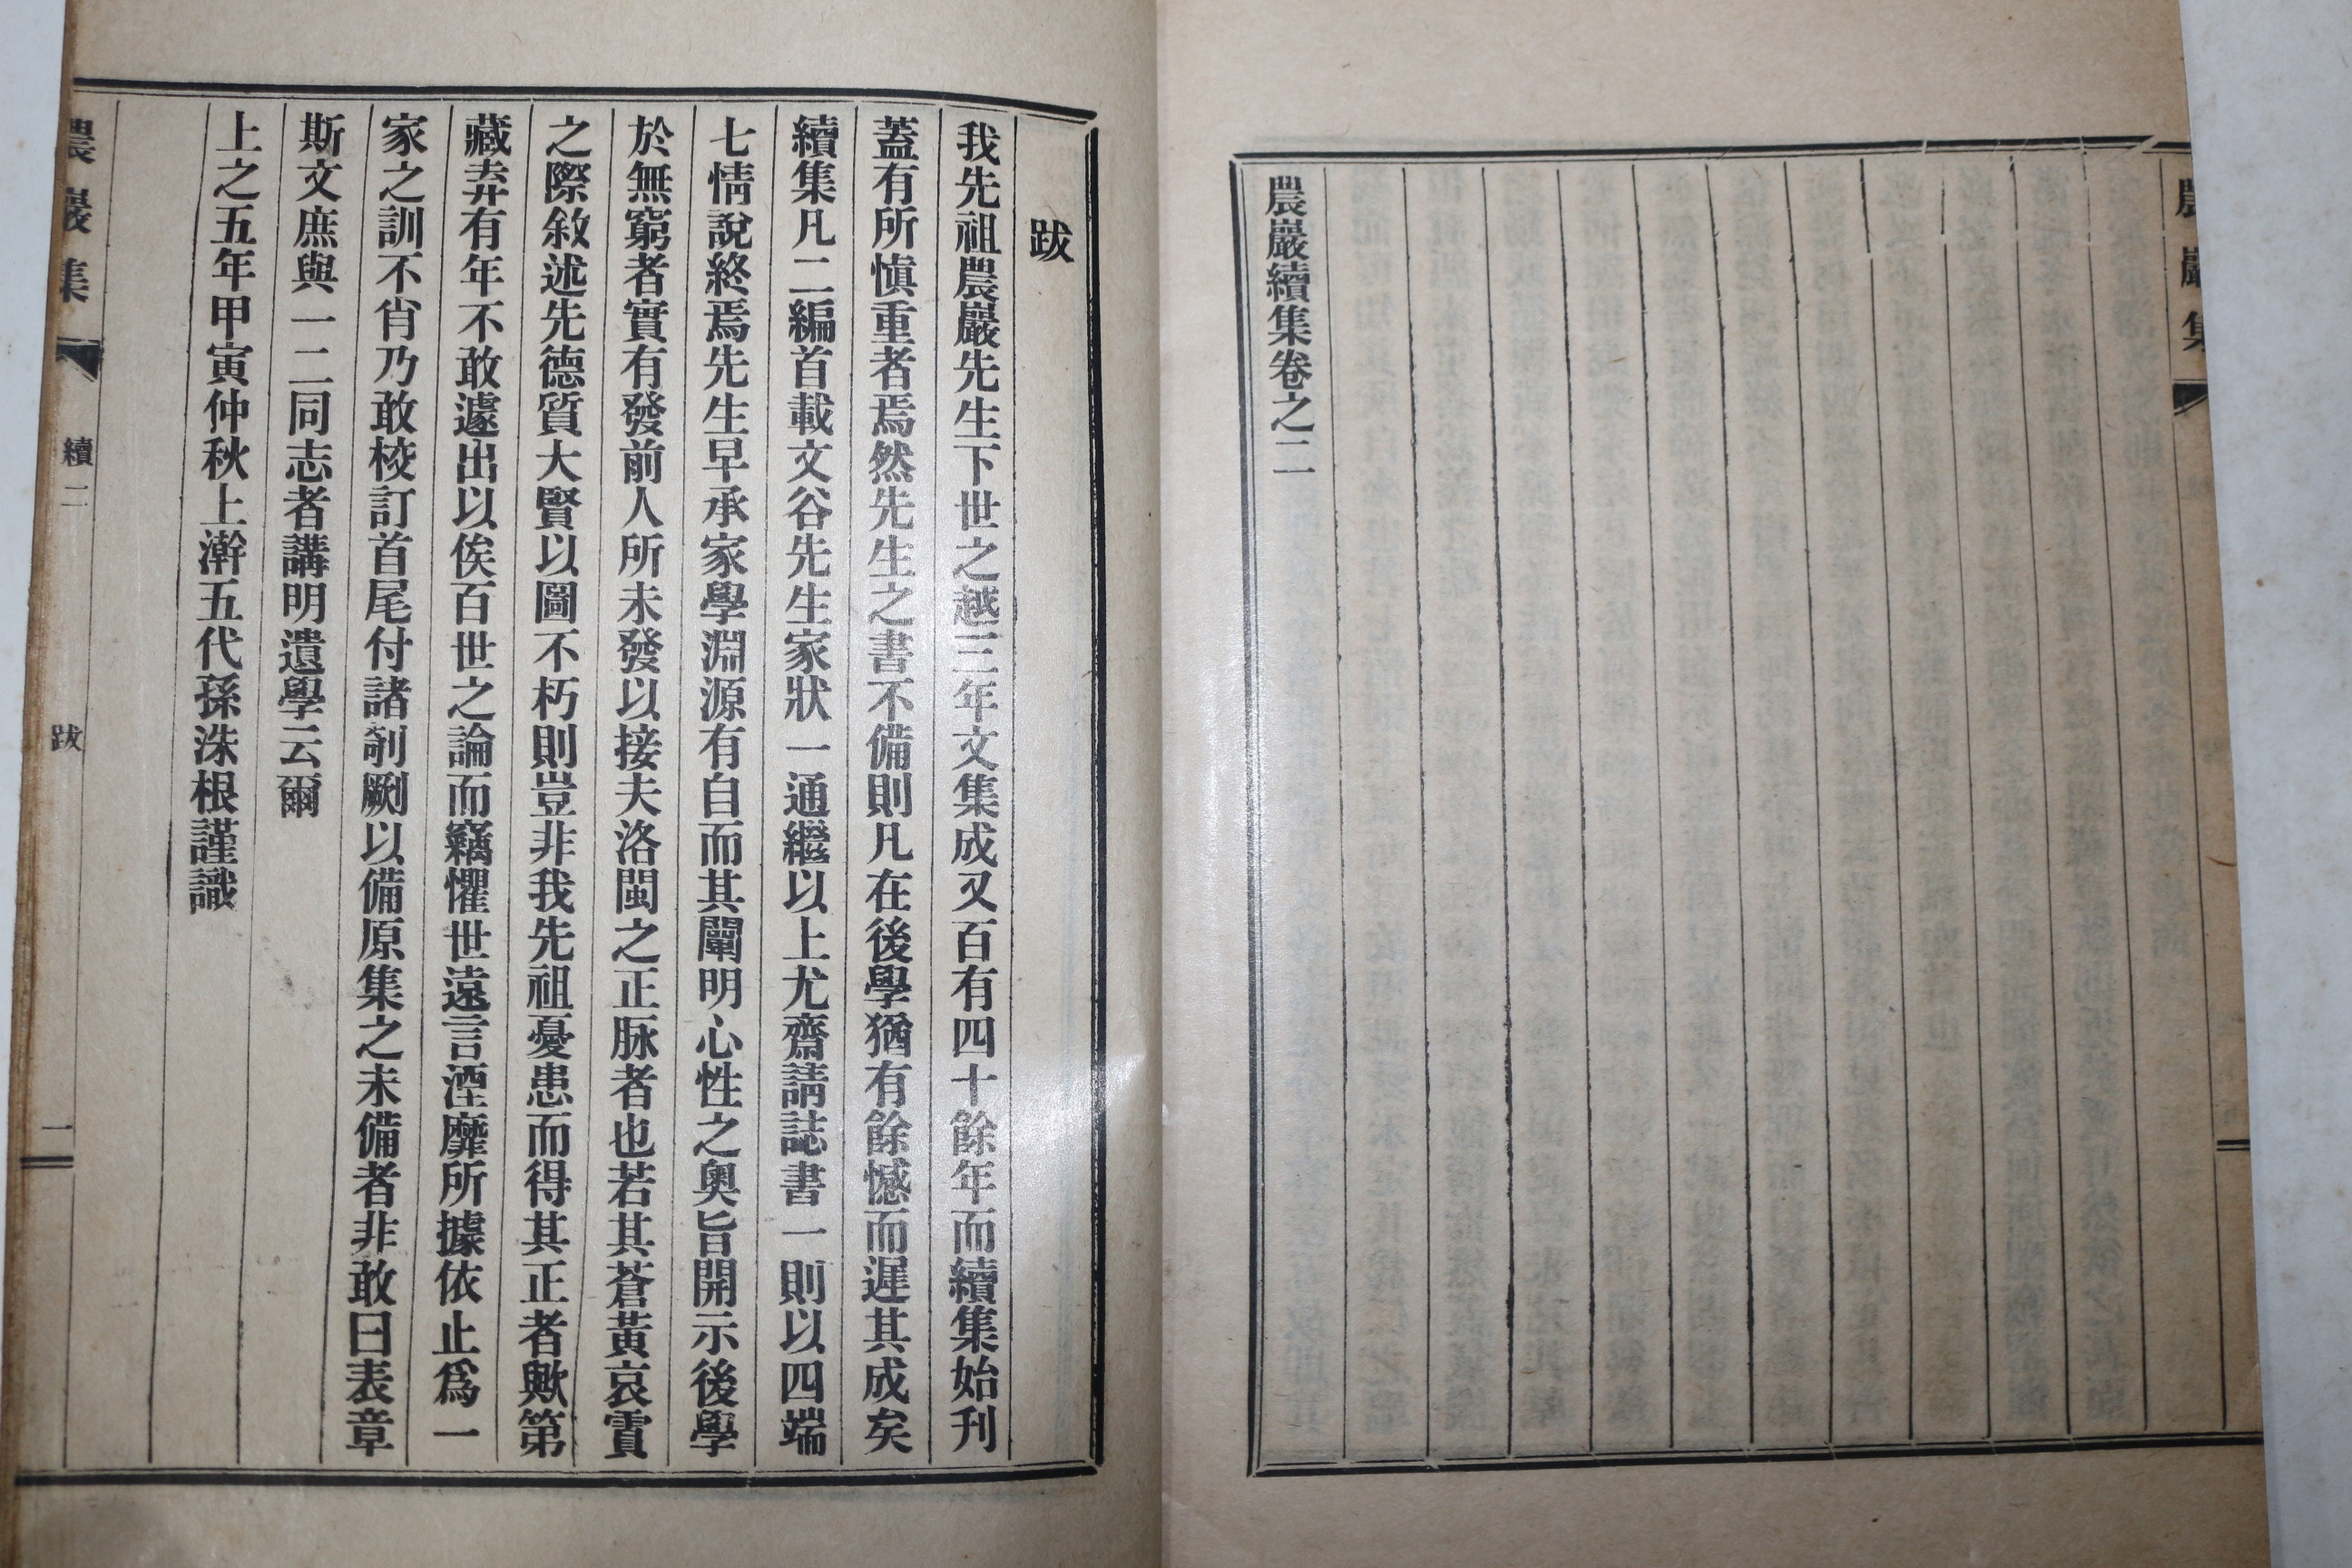 農巖集
農巖續集卷之二
跋
我先祖農巖先生下世之越三年文集成又百有四十餘年而續集始刊
蓋有所愼重者焉然先生之書不備則凡在後學猶有餘憾而遲其成矣
續集凡二編首載文谷先生家狀一通繼以上尤齋請誌書一則以四端
七情說終焉先生早承家學淵源有自而其闡明心性之奧旨開示後學
於無窮者實有發前人所未發以接夫洛閩之正脉者也若其蒼黃哀霣
之際敘述先德質大賢以圖不朽則豈非我先祖憂患而得其正者歟第
藏弆有年不敢遽出以俟百世之論而竊懼世遠言湮靡所據依止爲一
家之訓不肖乃敢校訂首尾付諸剞劂以備原集之未備者非敢曰表章
斯文庶與一二同志者講明遺學云爾
上之五年甲寅仲秋上澣五代孫洙根謹識
農巖集 續二 跋 一